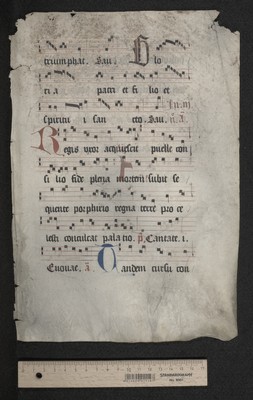 triumphat. Sau. Glo
ri a patri et fi lio et
spiritu i san cto. Sau.
Regis uxor acquiescit puelle con
si lio fide plena mortem subit se
quente porphirio regna terre pro ce
lesti conculcat palatio. Cantate. i.
Euouae. a Tandem cursu con